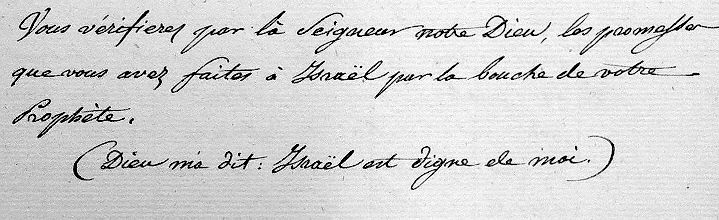 Vous vérifierez par là Seigneur notre Dieu, les promesses
que vous avez faites à Israël par la bouche de votre
Prophète.
(Dieu m'a dit : Israël est digne de moi.)